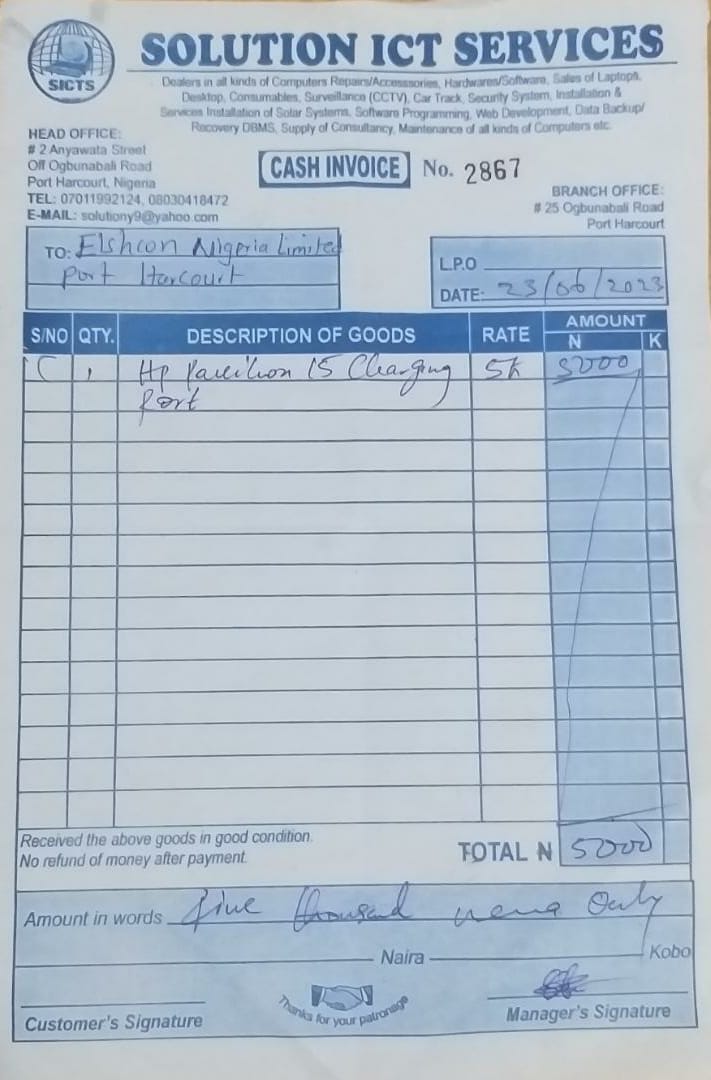 SICTS
SOLUTION ICT SERVICES
Dealers in all kinds of Computers Repairs/Accesssories, Hardwares/Software, Sales of Laptop/s,
Desktop, Consumables, Surveillance (CCTV), Car Track, Security System, Installation &
Services Installation of Solar Systems, Software Programming, Web Development, Data Backup/
Recovery DBMS, Supply of Consultancy, Maintenance of all kinds of Computers etc.
HEAD OFFICE:
# 2 Anyawata Street
Off Ogbunabali Road
Port Harcourt, Nigeria
TEL: 07011992124, 08030418472
E-MAIL: solutiony9@yahoo.com
CASH INVOICE No. 2867
BRANCH OFFICE:
# 25 Ogbunabali Road
Port Harcourt
TO: Elshcon Nigeria Limited
Port Harcourt
L.P.O
DATE: 23/06/2023
S/NO QTY. DESCRIPTION OF GOODS RATE AMOUNT
N K
1 Hp Pavilion 15 Charging 5k 5000
Port
Received the above goods in good condition.
No refund of money after payment.
TOTAL N 5000
Amount in words five thousand only
Naira Kobo
Customer's Signature
Thanks for your patronage
Manager's Signature